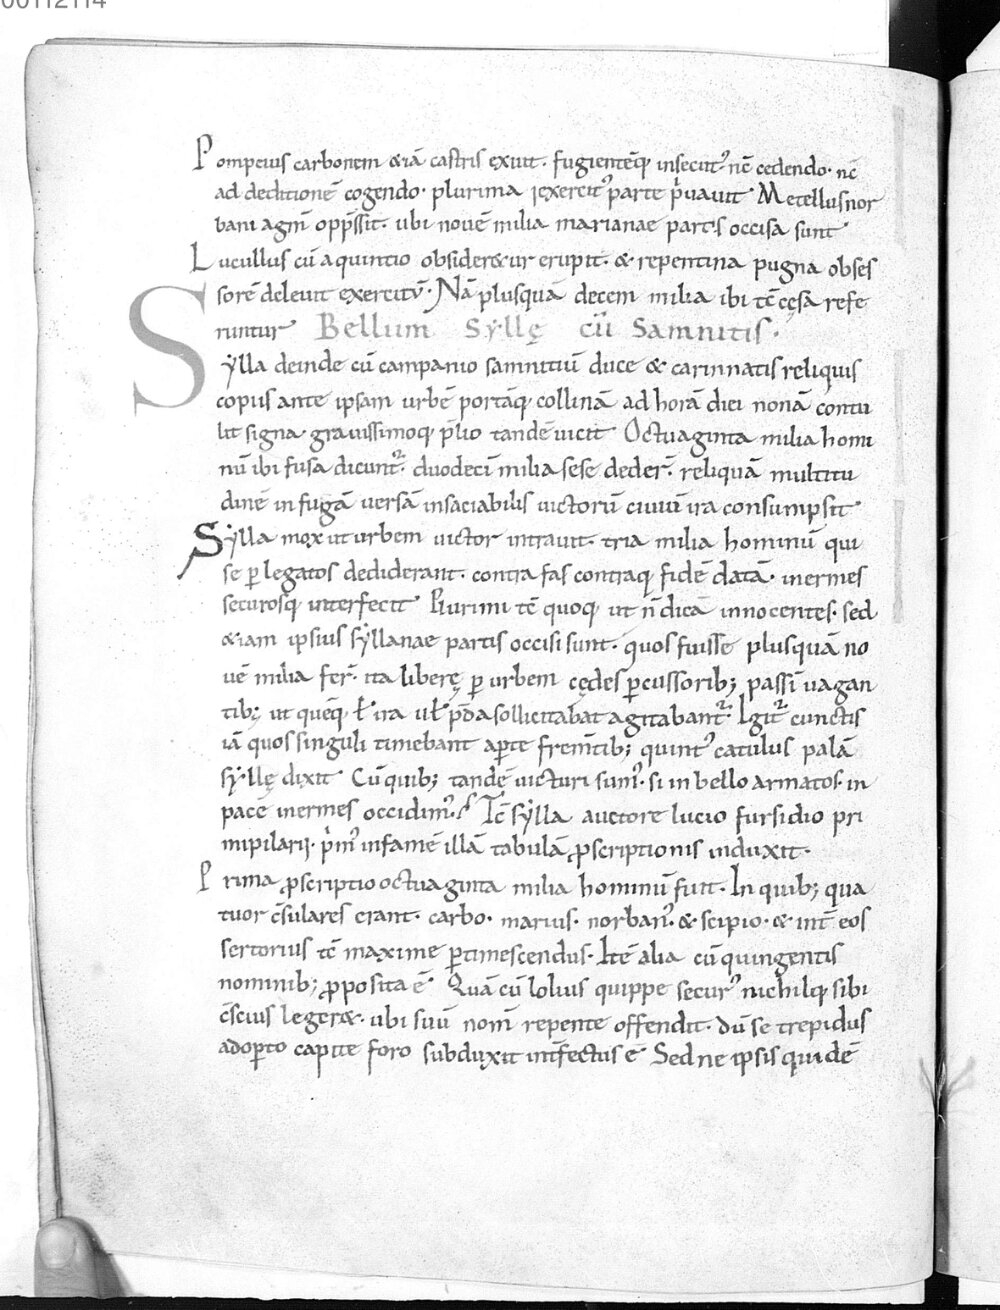 00112114
Pompeius carbonem &iā castris exuit· fugientēq; insecut᾽ nc̄ cedendo· nc̄
ad deditionē cogendo· plurima exercit᾽ parte p̍uauit Metellus nor
bani agm̄ opp̄ssit· ubi nouē milia marianae partis occisa sunt
Lucullus cū a quintio obsider&ur erupit· & repentina pugna obses
sorē deleuit exercitū· Nā plusquā decem milia ibi tc̄ cęsa refe
runtur Bellum Syllę cū Samnitis·
Sẏlla deinde cū campanio samnitiū duce & carinnatis reliquis
copiis ante ipsam urbē portāq; collinā ad horā diei nonā contu
lit signa· grauissimoq; p̄lio tandē uicit Octuaginta milia homi
nū ibi fusa dicunt᾽· duodeci milia sese deder̄· reliquā multitu
dinē in fugā uersā insaciabilis uictorū ciuiū ira consumpsit
Sẏlla mox ut urbem uictor intrauit· tria milia hominū qui
se ꝑ legatos dediderant· contra fas contraq; fidē datā· inermes
securosq; interfecit Plurimi tc̄ quoq; ut n̄ dicā innocentes· sed
&iam ipsius sẏllanae partis occisi sunt· quos fuisse plusquā no
uē milia fer̄· ita liberę ꝑ urbem cędes ꝑcussorib; passī uagan
tib; ut quēq; ł ira uł p̄da sollicitabat agitabant᾽· Igit᾽ cunctis
iā quos singuli timebant aꝑte frem̄tib; quint᾽ catulus palā
sẏllę dixit Cū quib; tandē uicturi sum᾽· si in bello armatos· in
pacē inermes occidim᾽? Tc̄ sẏlla auctore lucio fursidio pri
mipilarii· p̍m᾽ infamē illā tabulā ꝓscriptionis induxit·
Prima ꝓscriptio octuaginta milia hominū fuit· In quib; qua
tuor c̄sulares erant· carbo· marius· norban᾽· & scipio· & int̄ eos
sertorius tc̄ maxime ꝑtimescendus· Itē alia cū quingentis
nominib; ꝓposita ē Quā cū lolius quippe secur᾽ nichilq; sibi
c̄scius leger&· ubi suū nom̄ repente offendit· dū se trepidus
adoꝑto capite foro subduxit int̄fectus ē Sed ne ipsis quidē